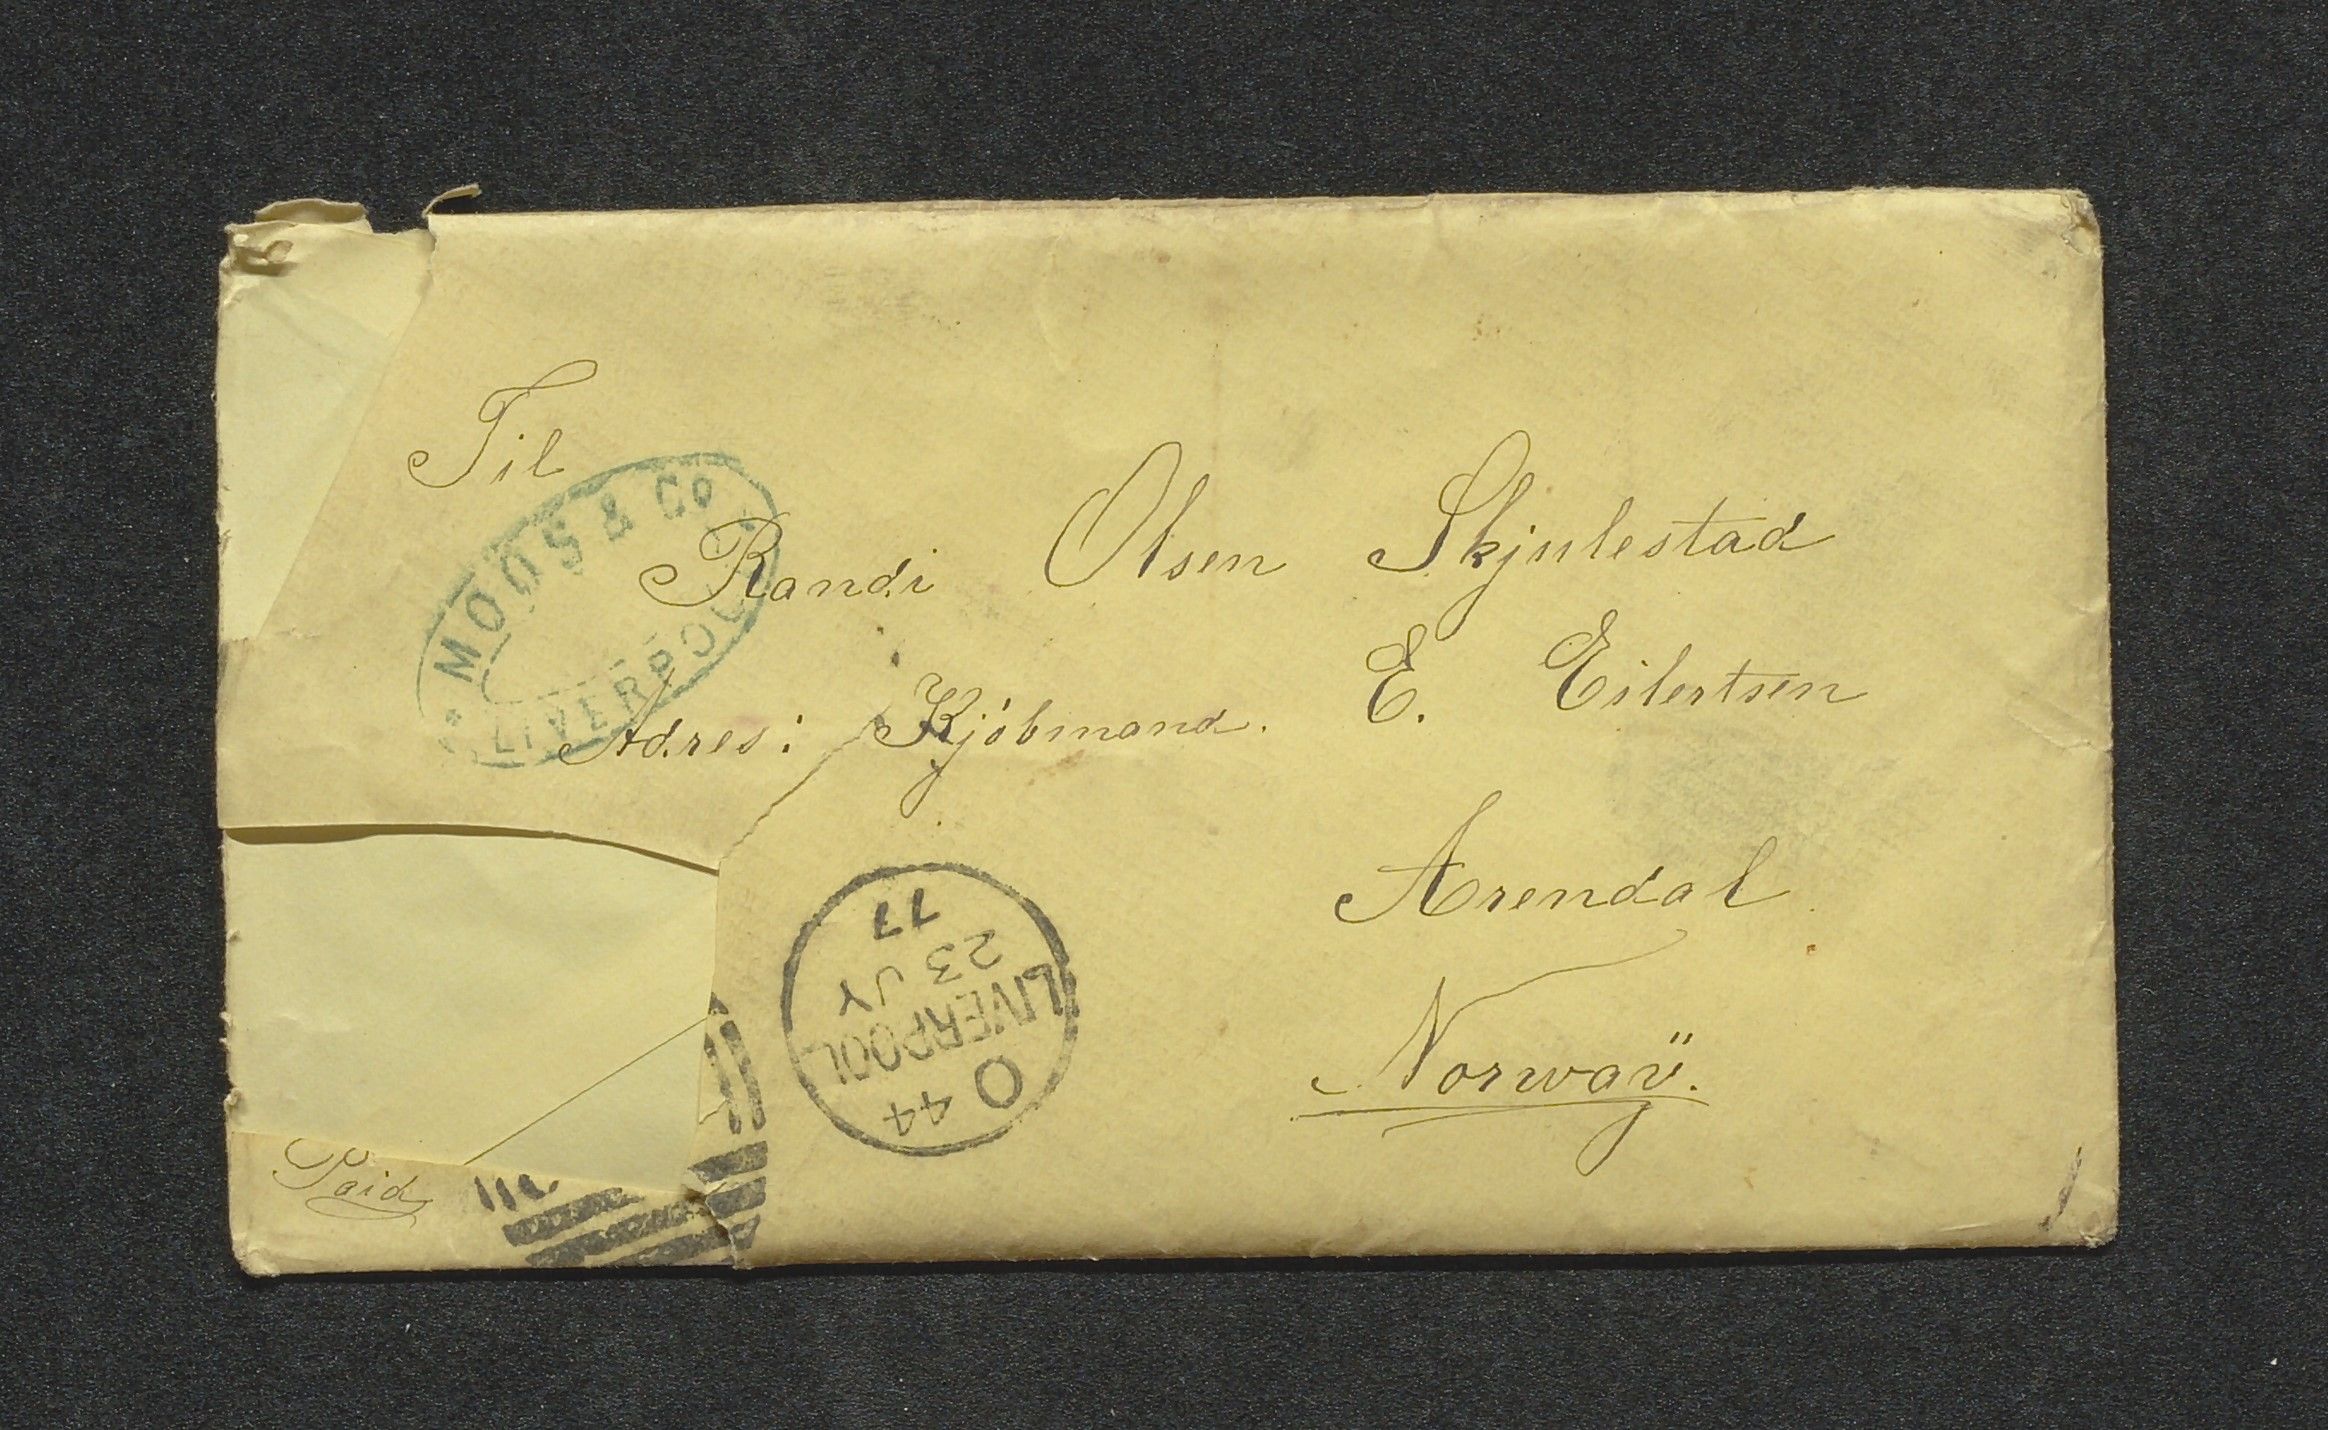 Til
MOOS & Co
LIVERPOOL
Randi Olsen Skjulestad
Adres: Kjöbmand. E. Eilertsen
Arendal
Norwaÿ.
Paid
O 44
LIVERPOOL
23 JY
77